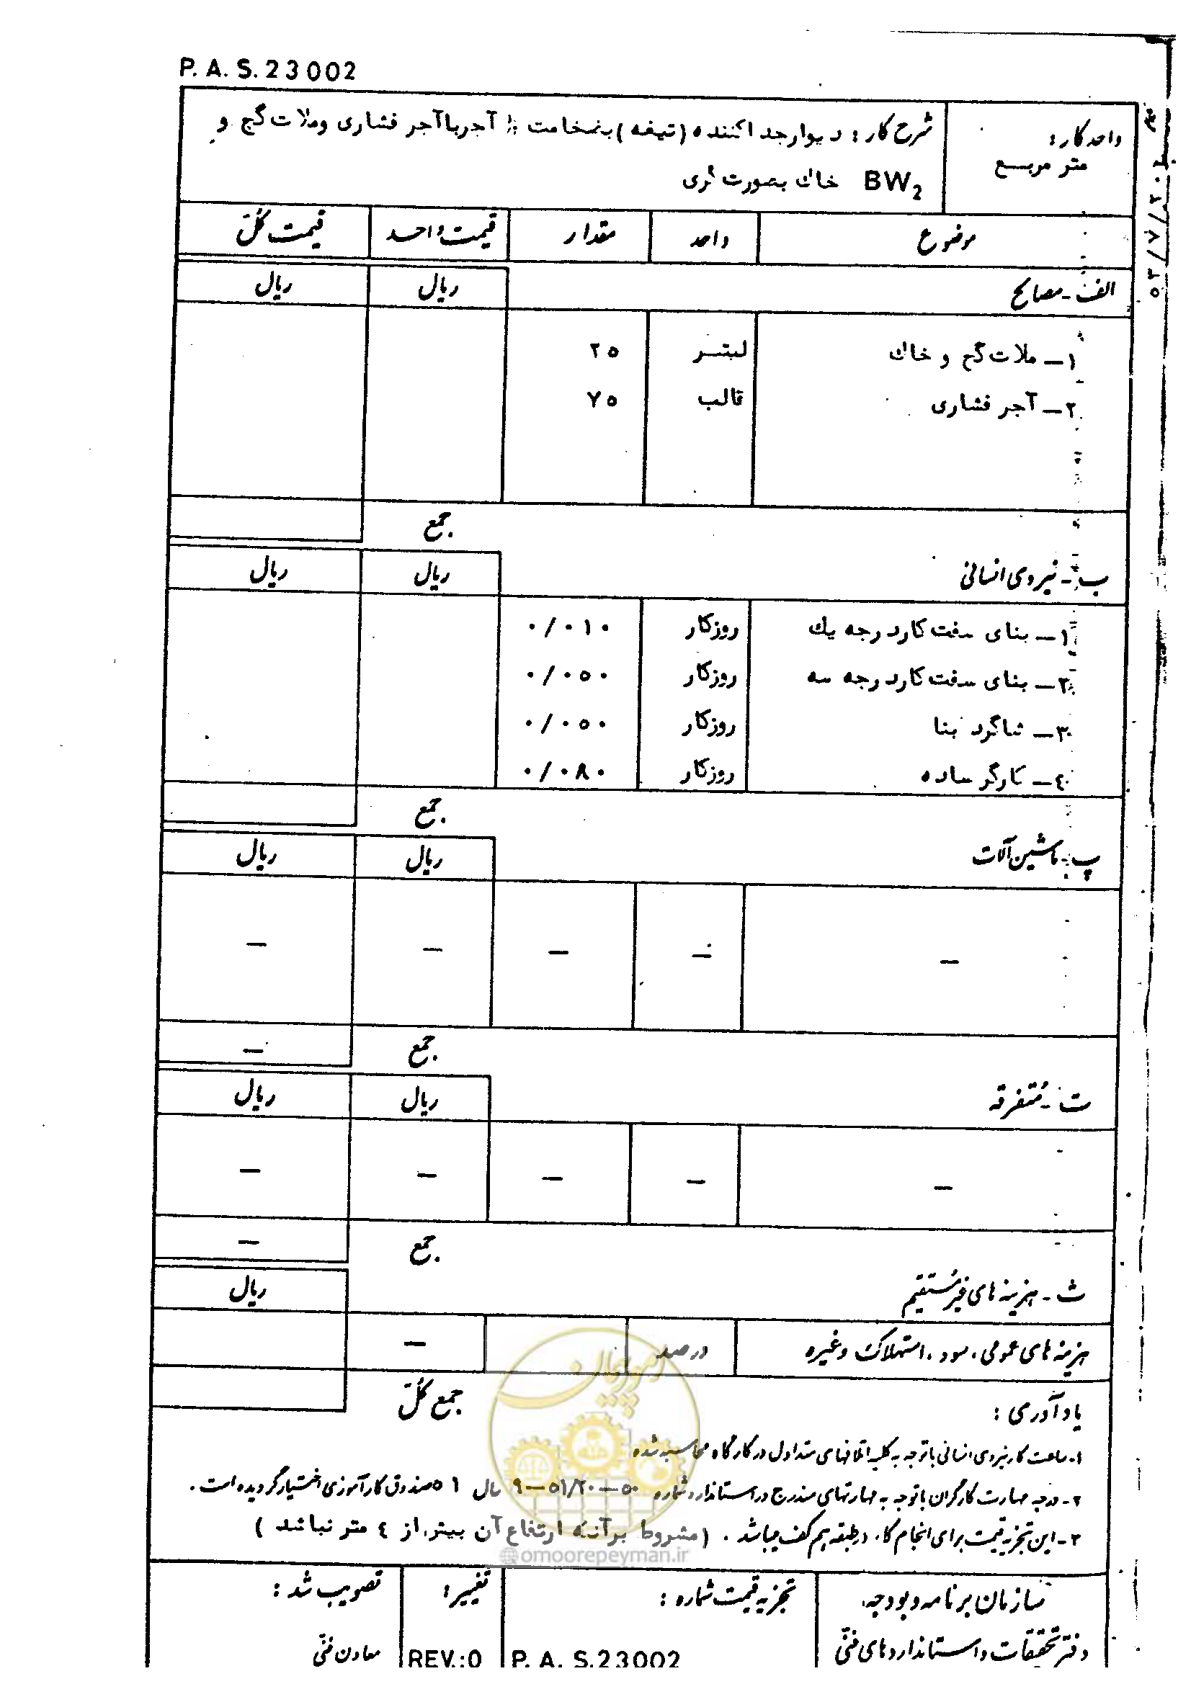 P. A. S. 23002
واحد کار:
متر مربع
شرح کار: دیوار جدا کننده (تیغه) بضخامت آجر با آجر فشاری و ملات گچ و
خاك بصورت کری BW2
موضوع واحد مقدار قیمت واحد قیمت کل
الف - مصالح ریال ریال
۱- ملات گچ و خاك لیتر ۲۵
۲- آجر فشاری قالب ۷۵
جمع
ب - نیروی انسانی ریال ریال
۱- بنای سفت کار درجه یك روزکار ۰/۰۱۰
۲- بنای سفت کار درجه سه روزکار ۰/۰۵۰
۳- شاگرد بنا روزکار ۰/۰۵۰
٤- کارگر ساده روزکار ۰/۰۸۰
جمع
پ - ماشین آلات ریال ریال
— — — — —
جمع —
ت - متفرقه ریال ریال
— — — — —
جمع —
ث - هزینه های غیر مستقیم ریال
هزینه های عمومی، سود، استهلاک و غیره درصد —
جمع کل
یادآوری:
۱- ساعت کار نیروی انسانی با توجه به کلیه اتلافهای متداول در کارگاه محاسبه شده
۲- درجه مهارت کارگران با توجه به مهارتهای مندرج در استاندارد شماره ۵۰-۵۱/۲۰-۹ سال ۵۱ صندوق کارآموزی اختیار گردیده است.
۳- این تجزیه قیمت برای انجام کار در طبقه هم کف میباشد. (مشروط برآنکه ارتفاع آن بیشتر از ٤ متر نباشد)
امور پیمان
@omoorepeyman.ir
سازمان برنامه و بودجه
دفتر تحقیقات و استانداردهای فنی
تجزیه قیمت شماره:
P. A. S.23002
تغییر:
REV.:0
تصویب شد:
معاون فنی